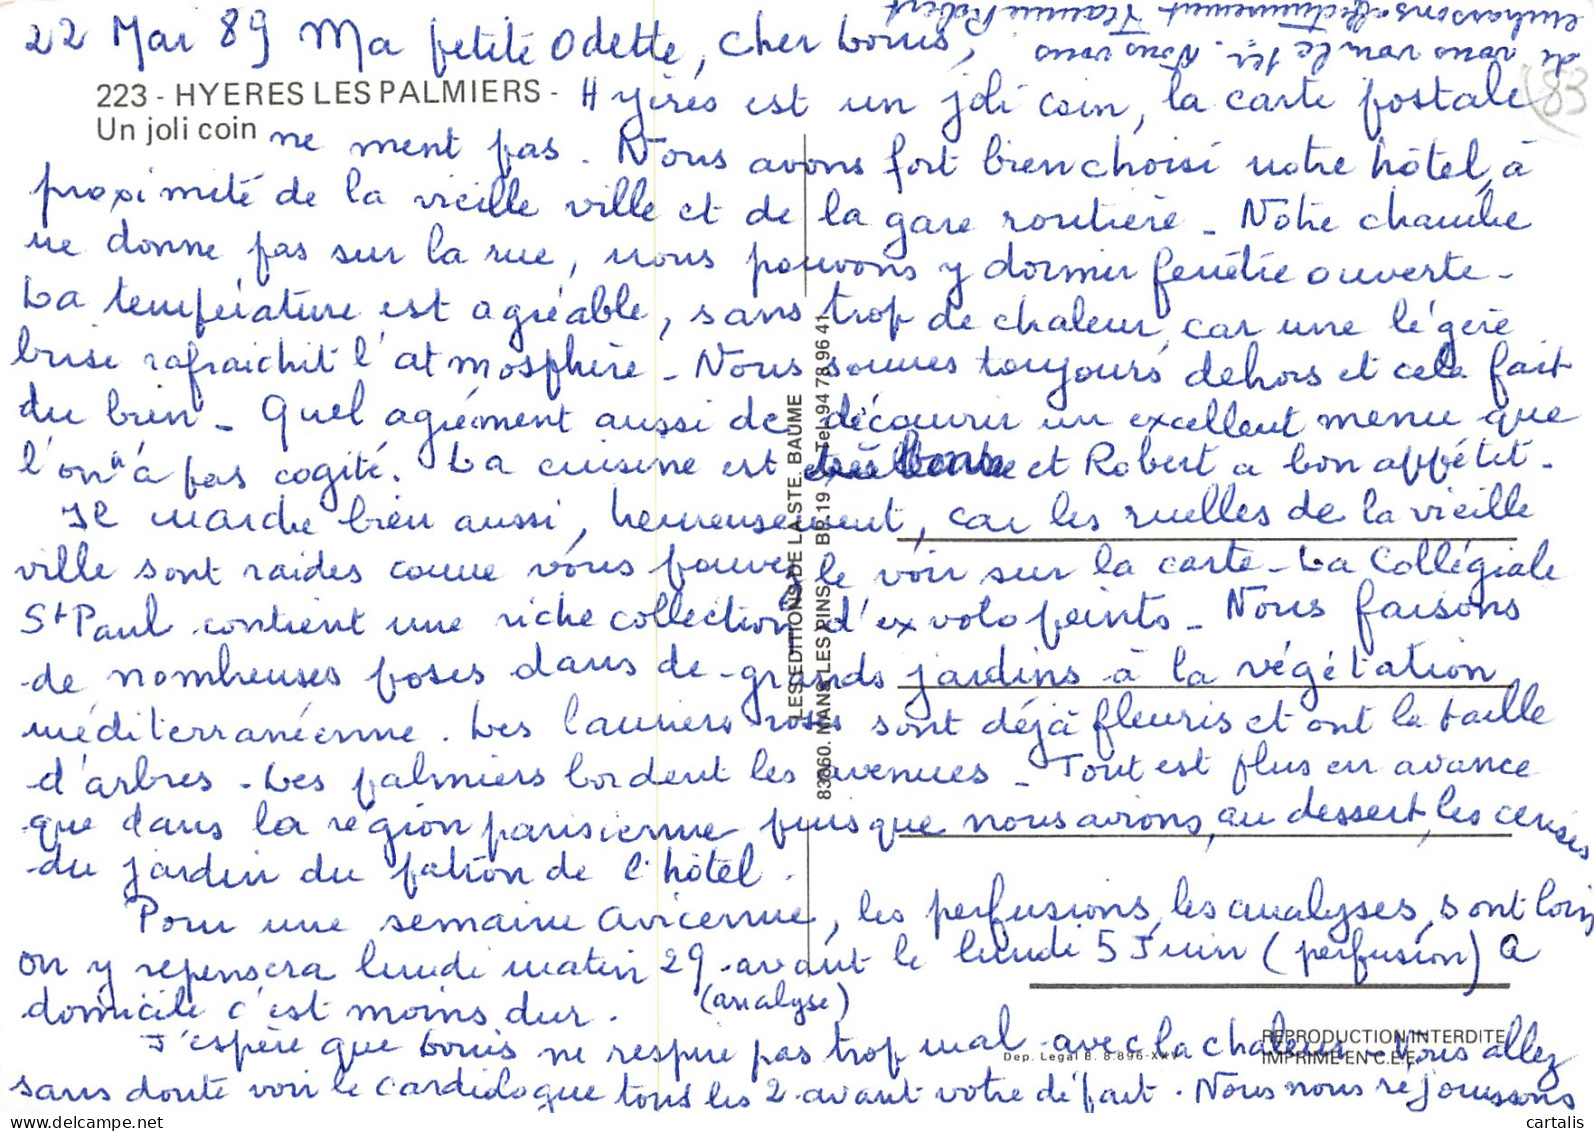 22 Mai 89 Ma petite Odette, cher Louis,
223 - HYERES LES PALMIERS - Hyères est un joli coin, la carte postale
Un joli coin ne ment pas. Nous avons fort bien choisi notre hôtel, à
proximité de la vieille ville et de la gare routière - Notre chambre
ne donne pas sur la rue, nous pouvons y dormir fenêtre ouverte -
La température est agréable, sans trop de chaleur, car une légère
brise rafraichit l'atmosphère - Nous sommes toujours dehors et cela fait
du bien - Quel agrément aussi de découvrir un excellent menu que
l'on n'a pas cogité. La cuisine est très bonne et Robert a bon appétit -
Il marche bien aussi, heureusement, car les ruelles de la vieille
ville sont raides comme vous pouvez le voir sur la carte - La Collégiale
St Paul contient une riche collection d'ex voto peints - Nous faisons
de nombreuses poses dans de grands jardins à la végétation
méditerranéenne. Les lauriers roses sont déjà fleuris et ont la taille
d'arbres - Les palmiers bordent les avenues - Tout est plus en avance
que dans la région parisienne puisque nous avions, au dessert, les cerises
du jardin du patron de l'hôtel.
Pour une semaine Avicenne, les perfusions, les analyses, sont loin
on y repensera lundi matin 29 (analyse) avant le lundi 5 Juin (perfusion) A
domicile c'est moins dur.
J'espère que Louis ne respire pas trop mal avec la chaleur - Vous allez
sans doute voir le cardiologue tous les 2 avant votre départ. Nous nous rejouissons
de vous voir le 1er. Nous vous
embrassons affectueusement Jeanne Robert
83
LES EDITIONS DE LA STE. BAUME
83860. NANS LES PINS. BP. 19 - Tel. 94 78 96 41
Dep. Legal B. 8.896-XXV
REPRODUCTION INTERDITE
IMPRIME EN C.E.E.
www.delcampe.net
cartalis